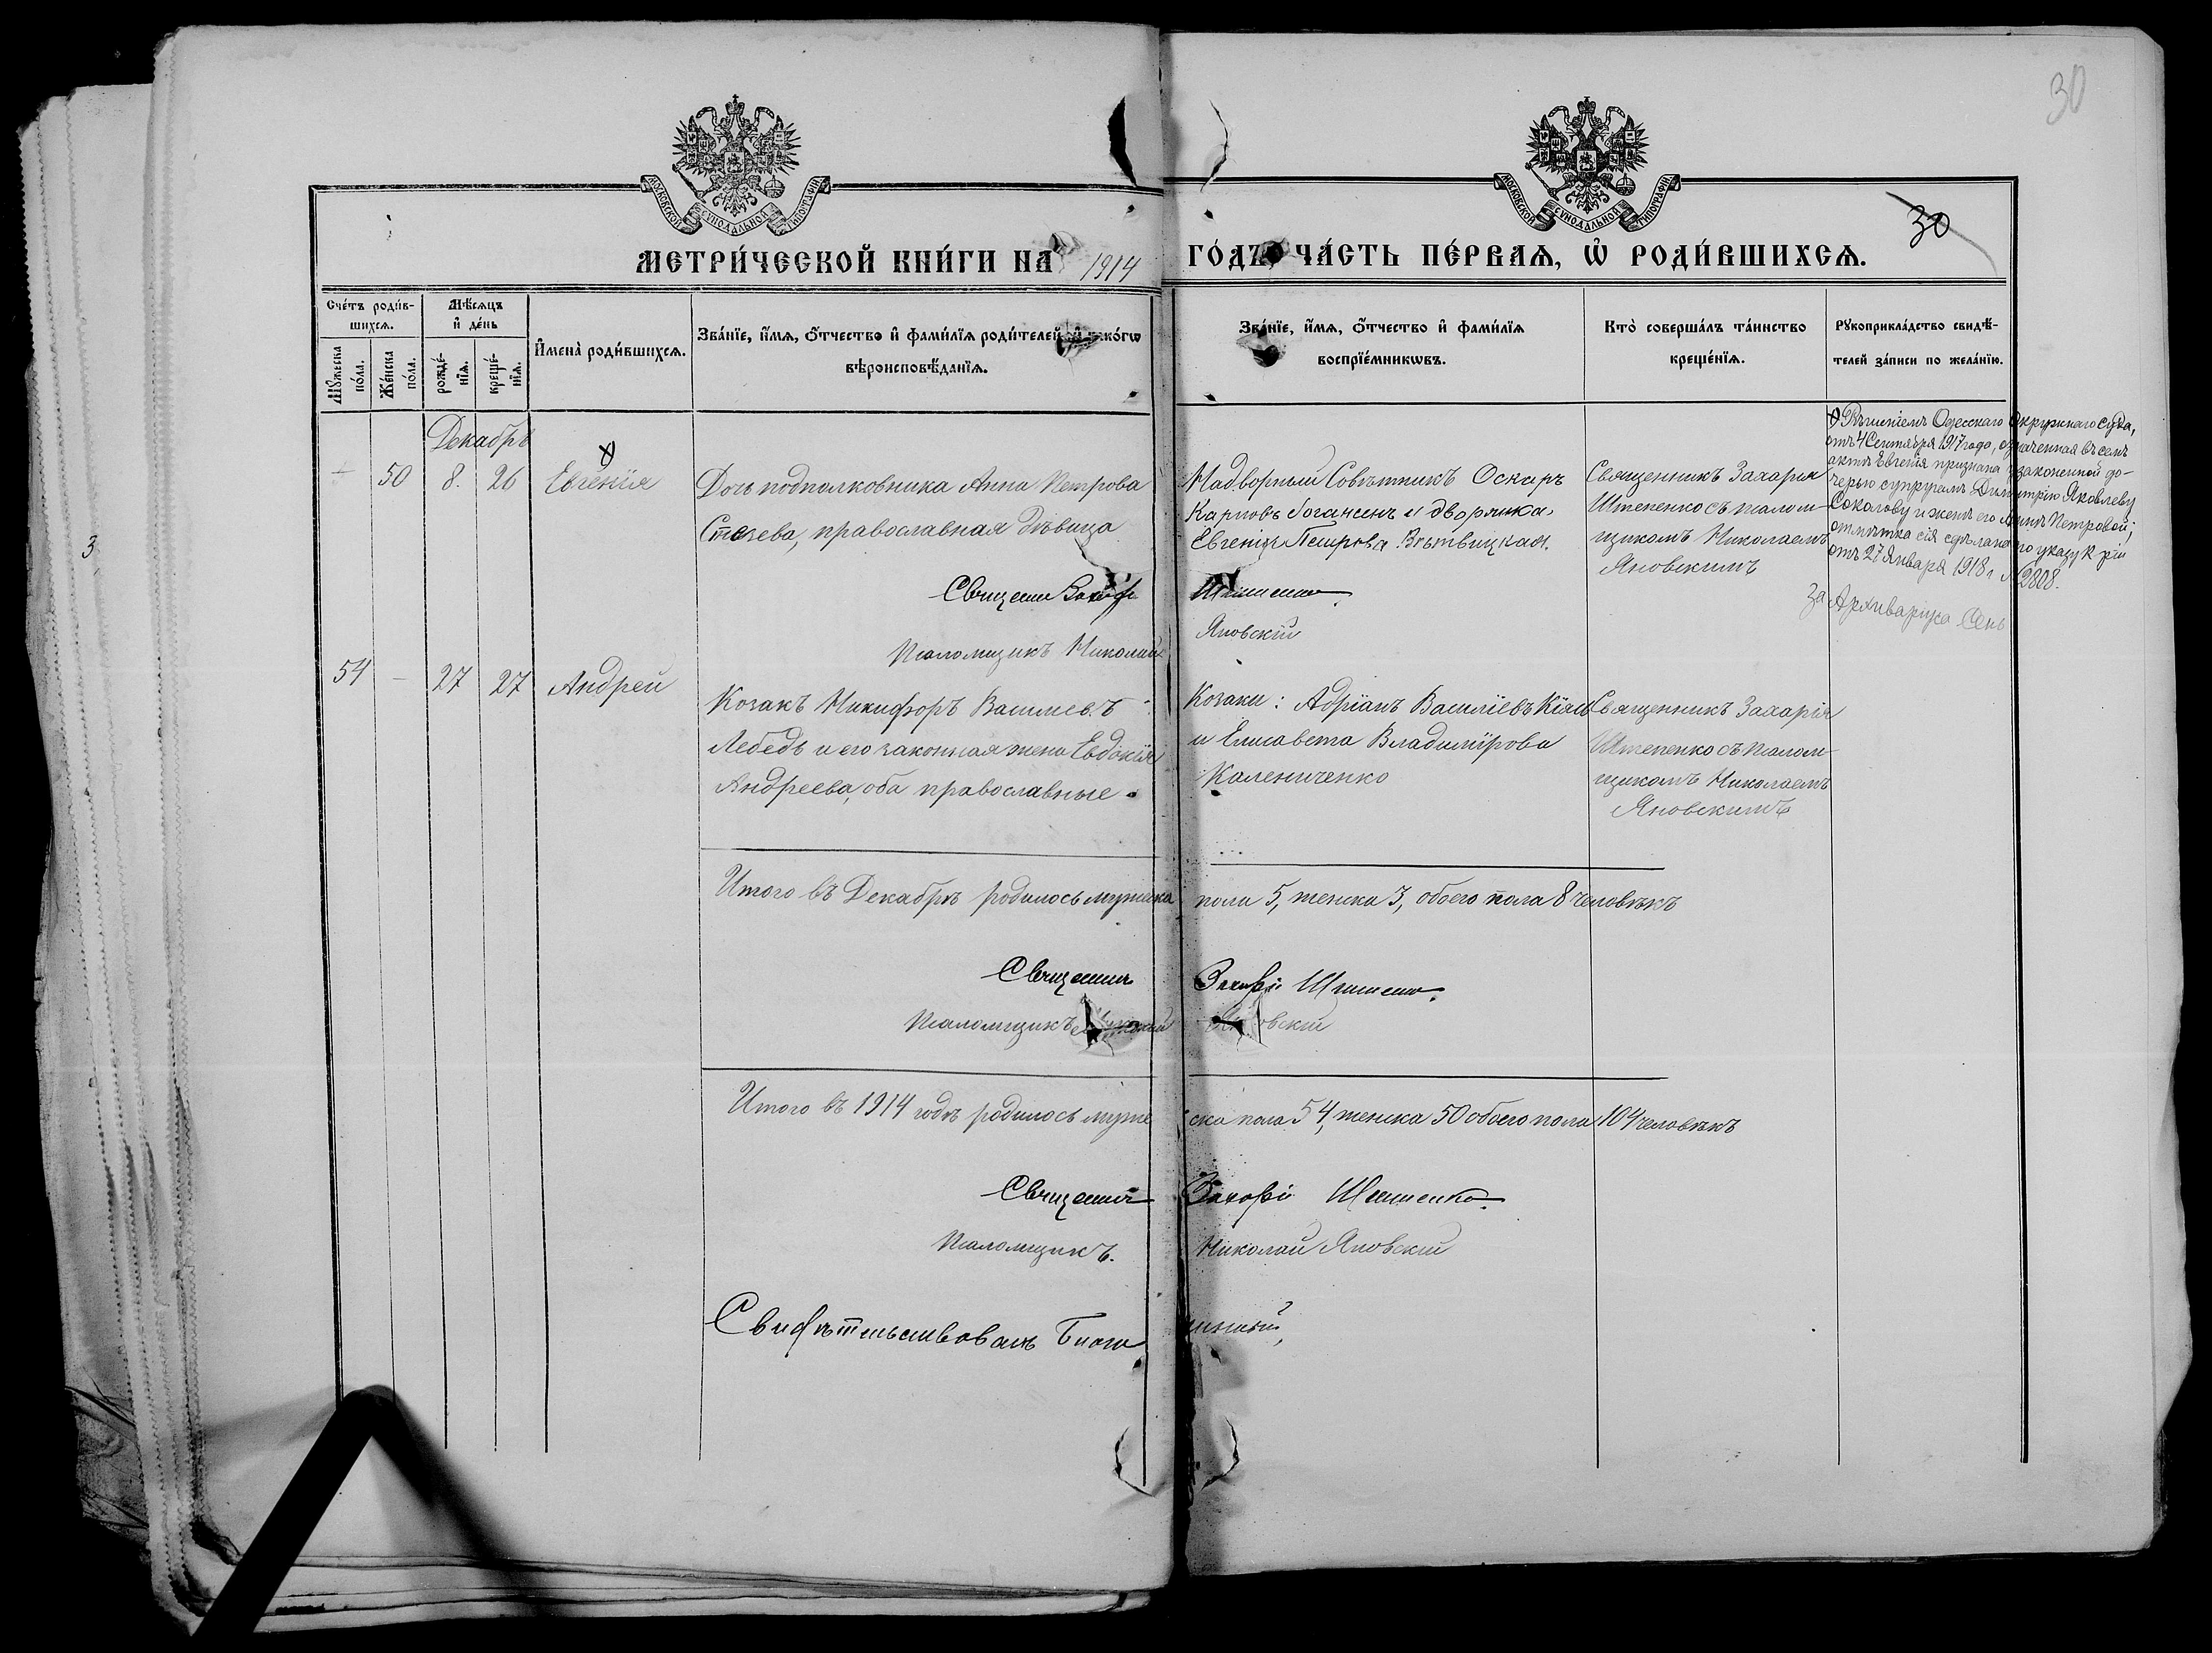 30
МОСКОВСКОЙ СѴНОДАЛЬНОЙ ТИПОГРАФІИ
МОСКОВСКОЙ СѴНОДАЛЬНОЙ ТИПОГРАФІИ
30
МЕТРИ́ЧЕСКОЙ КНИ́ГИ НА 1914 ГО́ДЪ ЧА́СТЬ ПЕ́РВАѦ, Ѡ҆ РОДИ́ВШИХСѦ.
Сче́тъ роди́в-
шихсѧ.
Мѣ́сѧцъ
и҆ де́нь
Мꙋ́жеска
по́ла.
Же́нска
по́ла.
рожде́-
нїѧ.
креще́-
нїѧ.
И҆мена̀ роди́вшихсѧ.
Зва́нїе, и҆́мѧ, ѻ҆́тчество и҆ фами́лїѧ роди́телей, и҆ како́гѡ
вѣроисповѣ́данїѧ.
Зва́нїе, и҆́мѧ, ѻ҆́тчество и҆ фами́лїѧ
воспрїе́мникѡвъ.
Кто̀ соверша́лъ та́инство
креще́нїѧ.
Рꙋкоприкла́дство свидѣ́-
телей за́писи по жела́нїю.
Декабрь
50 8. 26 Евгенія
Дочь подполковника Анна Петрова
православная дѣвица
Надворный Совѣтникъ Оскаръ
Карповъ Іогансенъ и дворянка
Евгенія Петрова Вѣтвицкая.
Священникъ Захарія
Штепенко съ псалом-
щикомъ Николаемъ
Яновскимъ
Рѣшеніемъ Одесскаго Окружнаго Суда,
отъ 4 Сентября 1917 года, означенная въ семъ
актѣ Евгенія признана узаконенной до-
черью супругамъ Димитрію Яковлеву
Соколову и женѣ его Аннѣ Петровой;
отмѣтка сія сдѣлана по указу К-ріи
отъ 27 Января 1918 г. № 2808.
За Архиваріуса Сень
Священни Захарі Штепенко
Псаломщикъ Николай Яновскій
54 - 27 27 Андрей
Козакъ Никифоръ Васильевъ
Лебедь и его законная жена Евдокія
Андреева, оба православные
Козаки: Адріанъ Василіевъ Кіяш
и Елисавета Владимірова
Калениченко
Священникъ Захарія
Штепенко съ псалом-
щикомъ Николаемъ
Яновскимъ
Итого въ Декабрѣ родилось мужска пола 5, женска 3, обоего пола 8 человѣкъ
Священник Захарі Штепенко
Псаломщикъ Николай Яновскій
Итого въ 1914 годѣ родилось мужеска пола 54, женска 50 обоего пола 104 человѣкъ
Священник Захарі Штепенко
Псаломщикъ. Николай Яновскій
Свидѣтельствовалъ
3